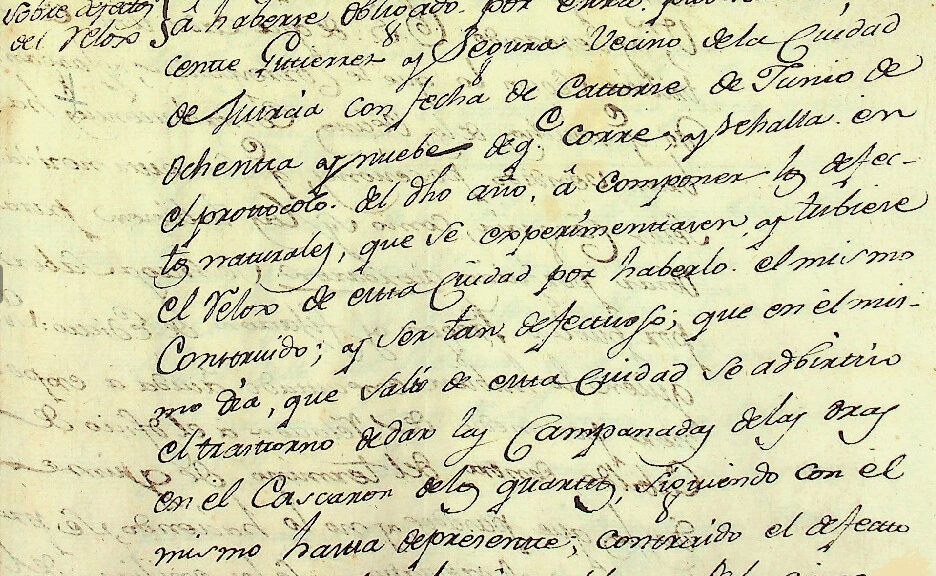 sobre defectos
del Relox
á haberse obligado por
cente Gutierrez y Segura Vecino de la Ciudad
de Murcia con fecha de Cattorse de Junio de
ochenta y nuebe de q. corre y sehalla en
el prottocolo del dho año, á componer los defec-
tos naturales, que se experimentasen, y tubiese
el Relox de esta Ciudad por haberlo el mismo
Construido; y ser tan defectuoso; que en el mis-
mo dia, que salió de esta Ciudad se adbirtio
el trastorno de dar las Campanadas de las oras
en el Cascaron de los quartos, siguiendo con el
mismo hasta de presente, contraido el defecto